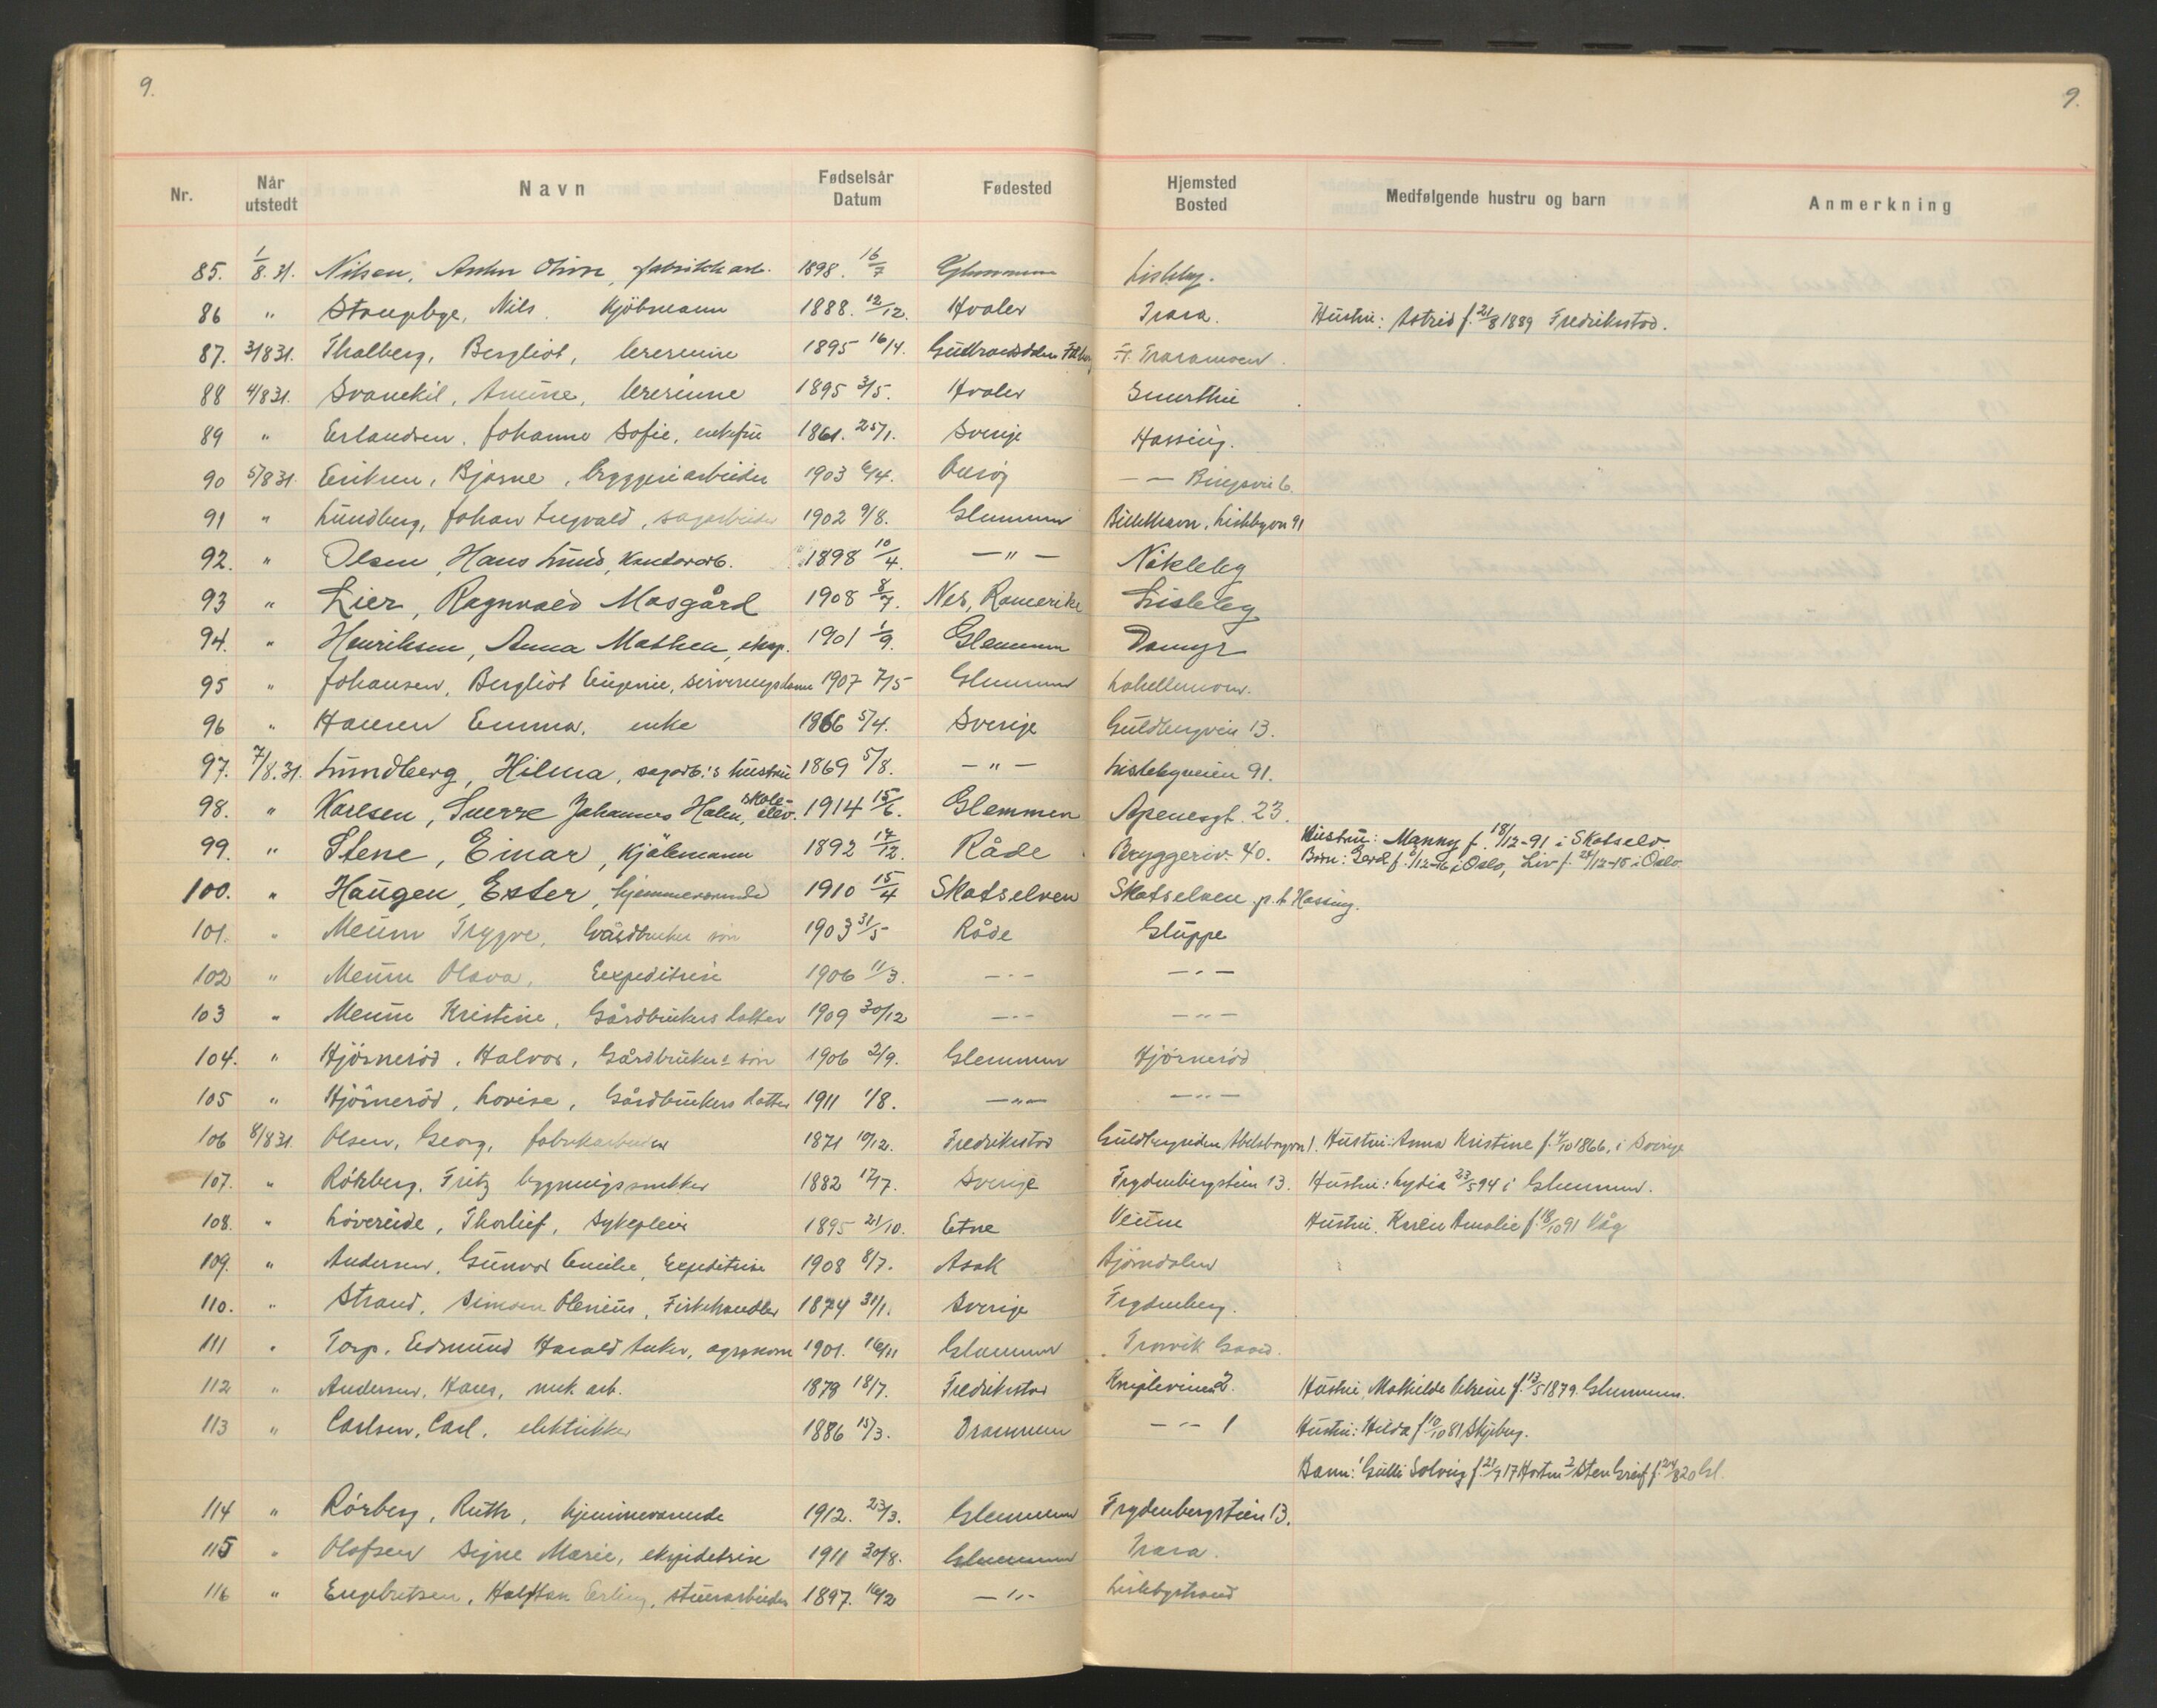 9.
9.
Nr. Når utstedt Navn Fødselsår Datum Fødested Hjemsted Bosted Medfølgende hustru og barn Anmerkning
85. 1/8.31. Nilsen, fabrikkarb. 1898. 16/7 Glemmen Lisleby.
86 " Stangebye, Nils. Kjöbmann 1888. 12/12. Hvaler Trara. Hustru: Astrid f. 21/8 1889 Fredrikstad.
87. 3/8 31. Thalberg, Bergliot, lærerinne 1895 16/4. Fr. Traramoen.
88 4/8 31. Svanekil, lærerinne 1895 3/5. Hvaler
89 " Erlandsen, Johanne Sofie, enkefru 1861. 25/1. Sverige Hassing.
90 5/8 31. Eriksen, Bjarne, bryggeriarbeider 1903 6/4. — —
91 " Lundberg, Johan Ingvald, sagarbeider 1902 9/8. Glemmen Lislebyvn 91
92. " Olsen, Hans Lund, Kontorarb. 1898 10/4. — " — Nökleby
93 " Lier, Ragnvald Mosgård 1908 8/7. Nes, Romerike Lisleby
94. " Henriksen, Anna Mathea, eksp. 1901 1/9. Glemmen Damyr
95 " Johansen, Bergliot Eugenie, serveringsdame 1907 7/5 Glemmen
96 " Hansen Emma, enke 1866 5/4. Sverige Guldbergvein 13.
97. 7/8.31. Lundberg, Hilma, sagarb.'s hustru 1869 5/8. — " — Lislebyveien 91.
98. " Karlsen, Sverre Johannes Holm, skole-elev. 1914 15/6. Glemmen Apenesgt. 23.
99. " " Stene, Einar, Kjöbmann 1892 17/12. Råde Bryggeriv. 40. Hustru: Manny f. 18/12-91 i Skotselv.
Barn: Gerd f. /12-16 i Oslo, Liv f. 28/12-18 i Oslo
100. " Haugen, Ester, hjemmeværende 1910 15/4 Skotselven Skotselven p.t. Hassing.
101. " Meum Trygve, Gårdbruker sön 1903 31/5 Råde Gluppe
102 " Meum Olava, Expeditrise 1906 11/3. — " — — " —
103 " Meum Kristine, Gårdbrukers datter 1909 30/12 — " — — " —
104. " Hjörneröd, Halvor, Gårdbrukers sön 1906 2/9. Glemmen Hjörneröd
105 " Hjörneröd, Lovise, Gårdbrukers datter 1911 1/8. — " — — " —
106 8/8 31. Olsen, Georg, fabrikarbeider 1871 10/12. Fredrikstad Hustru: Anna Kristine f. 4/10 1866, i Sverige
107. " Rörberg, Fritz bygningssnekker 1882 17/7. Sverige Frydenbergstien 13. Hustru: Lydia 23/5 94 i Glemmen.
108. " Lövereide, Thorlief, Sykepleier 1895 21/10. Etne Veum Hustru. Karen Amalie f. 18/10 91 Våg
109. " Andersen, Gunvor Emilie, Expeditrise 1908 8/7. Asak Bjørndalen
110. " Strand, Simon Olenius, Fiskehandler 1874 31/1. Sverige Frydenberg.
111 " Torp, Edmund Harald Anker, agronom 1901. 16/11 Glemmen Trosvik Gaard.
112 " Andersen, Hans, mek. arb. 1878 18/7. Fredrikstad Kniplevien 2. Hustru, Mathilde f. 13/5 1879. Glemmen.
113 " Carlsen, Carl, elektriker 1886 15/3. Drammen — " — 1 Hustru: Hilda f 10/10 81 Skjeberg.
Barn: Gulli Solveig f. 21/9 17 Horten 2 Sten Greif f. 24/8 20 Gl.
114 " Rörberg, Ruth, hjemmeværende 1912. 23/3. Glemmen Frydenbergstien 13.
115 " Olofsen Signe Marie, expeditrise 1911 30/8. Glemmen Trara.
116 " Engebretsen, Halfdan Erling, stuerarbeider 1897. 16/2 — " — Lislebystrand